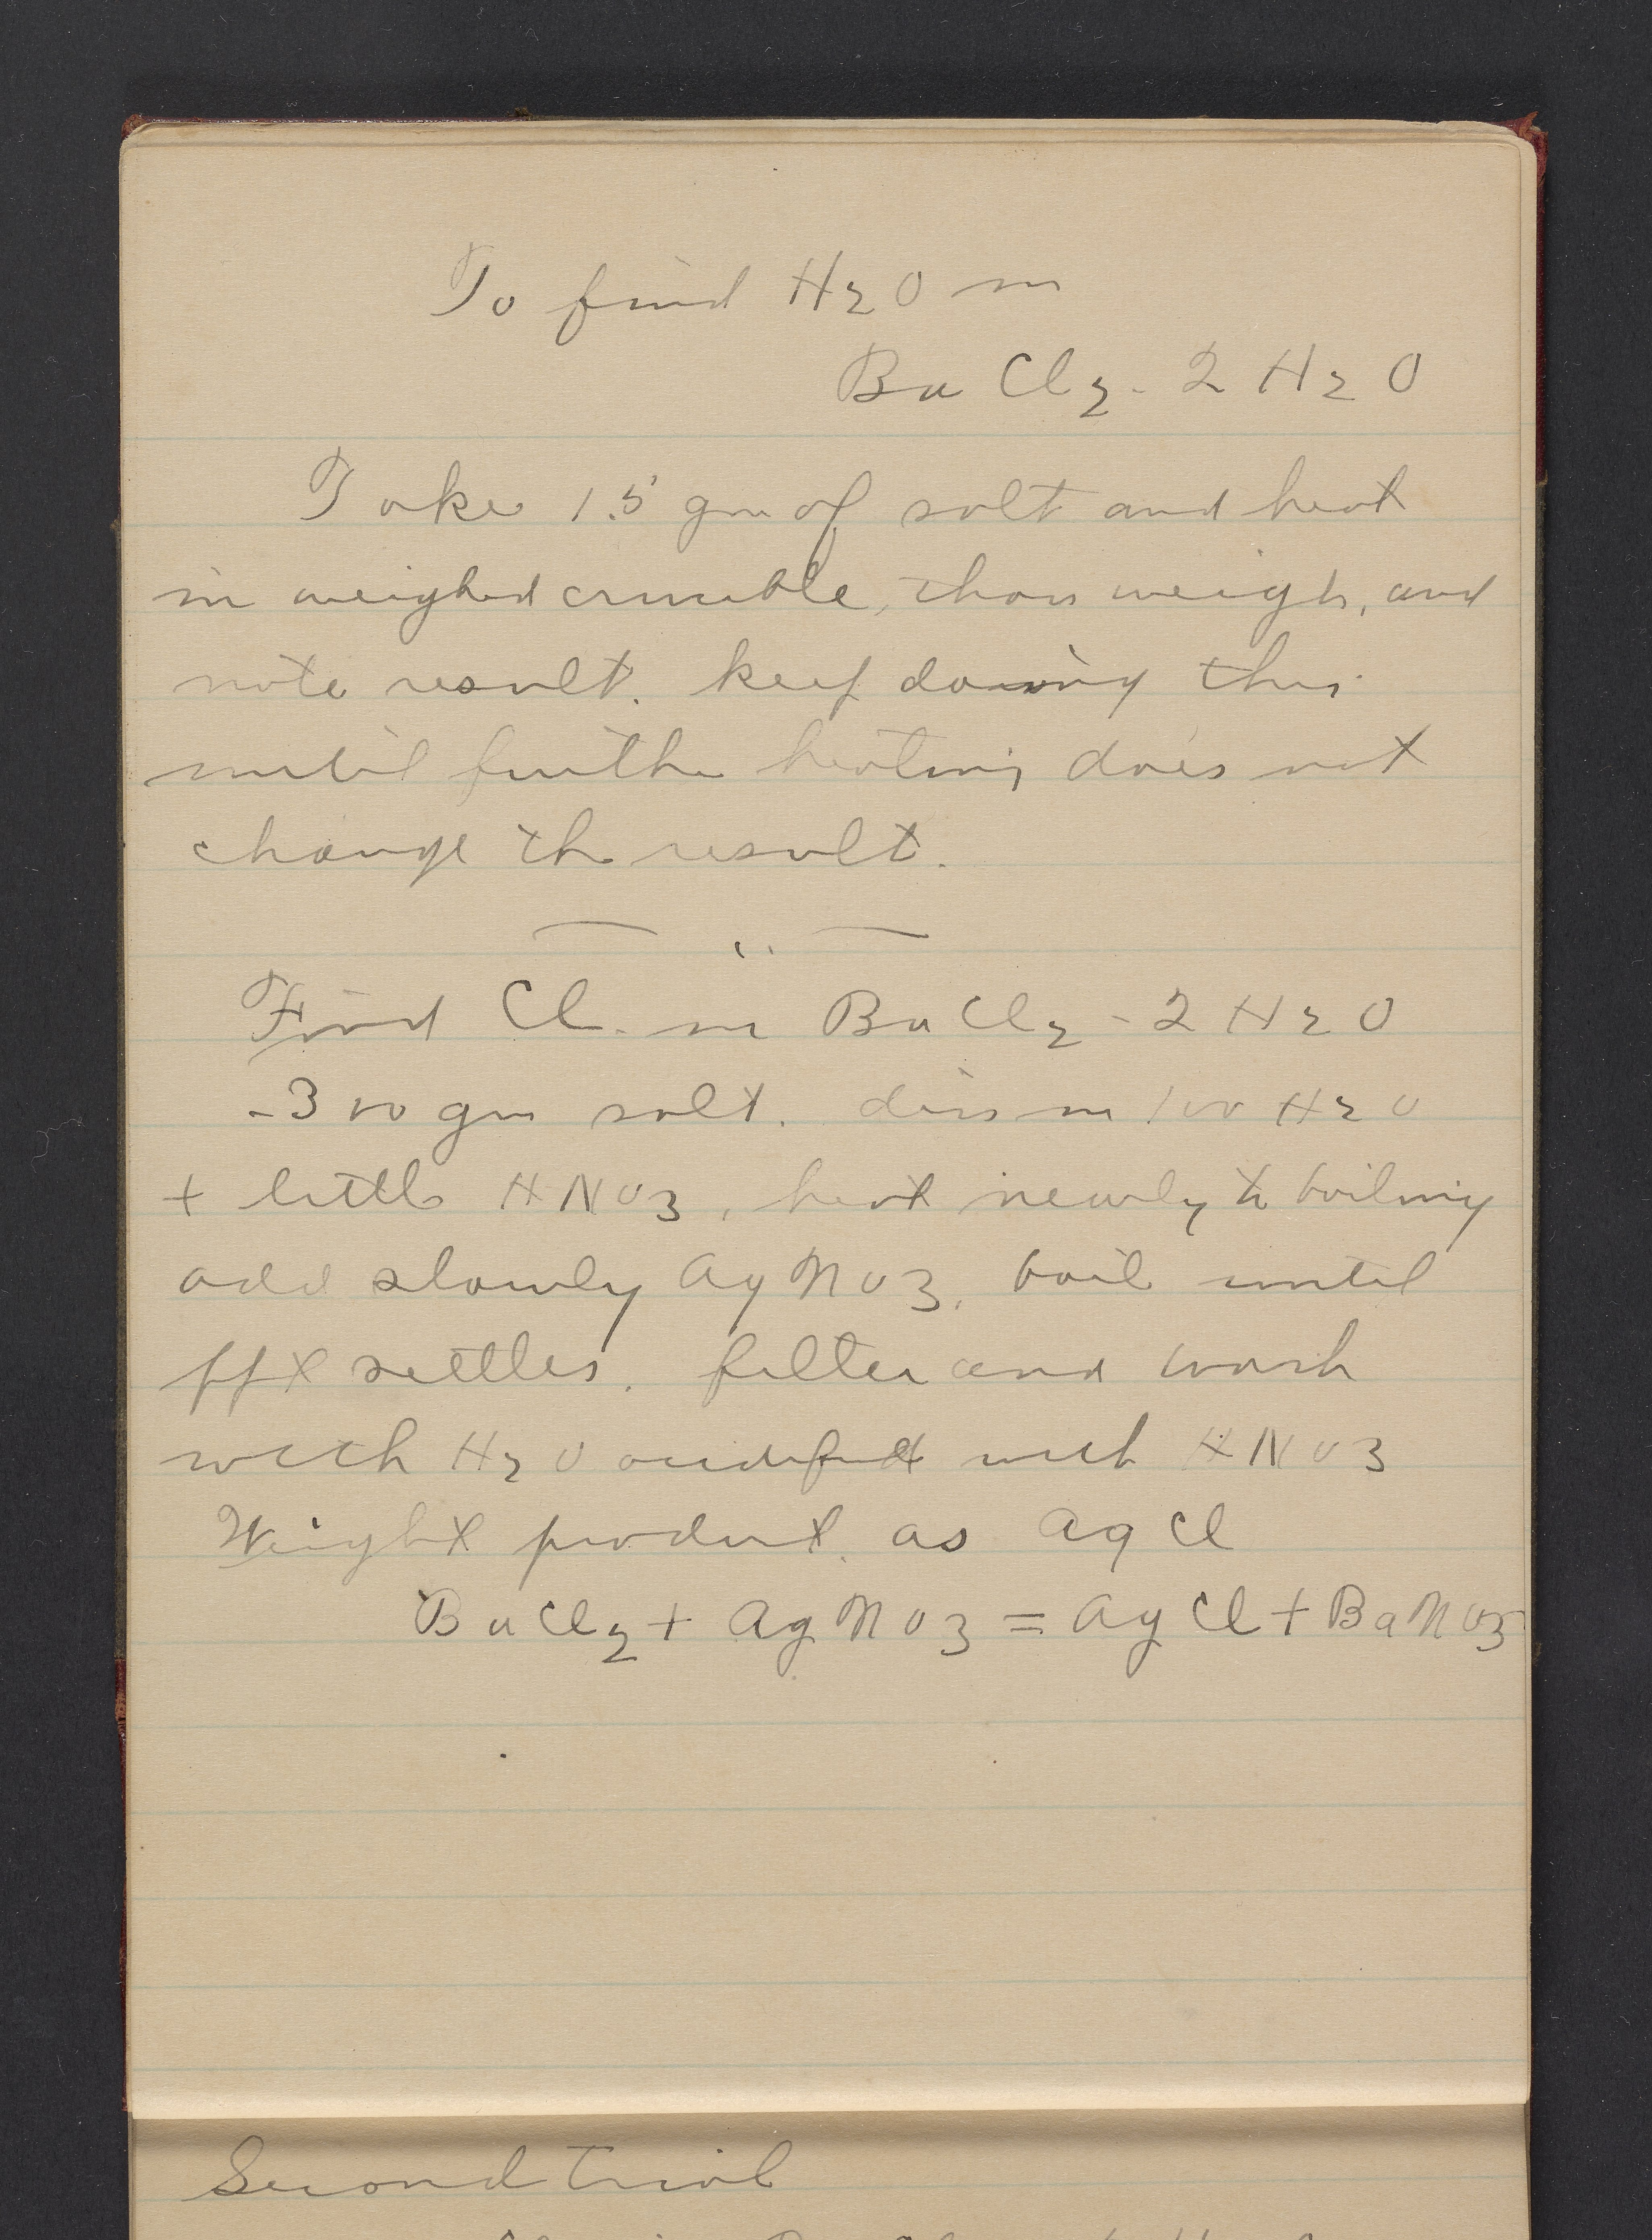 To find H2O in
BaCl2 - 2 H2O
Take 1.5 gm of salt and heat
in weighed crucible, then weigh, and
note result. keep doing this
until further heating does not
change the result.
Find Cl. in BaCl2 - 2 H2O
-300 gm salt. diss in 100 H2O
+ little HNO3, heat nearly to boiling
add slowly AgNO3. boil until
ppt settles. filter and wash
with H2O acidified with HNO3
Weight product as AgCl
BaCl2 + AgNO3 = AgCl + BaNO3
Second trial